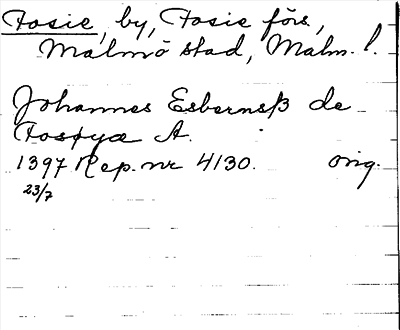 Fosie, by, Fosie förs,
Malmö stad, Malm. l.
Johannes Esbernsß de
Fosþyæ A.
1397 Rep. nr 4130. orig.
23/7